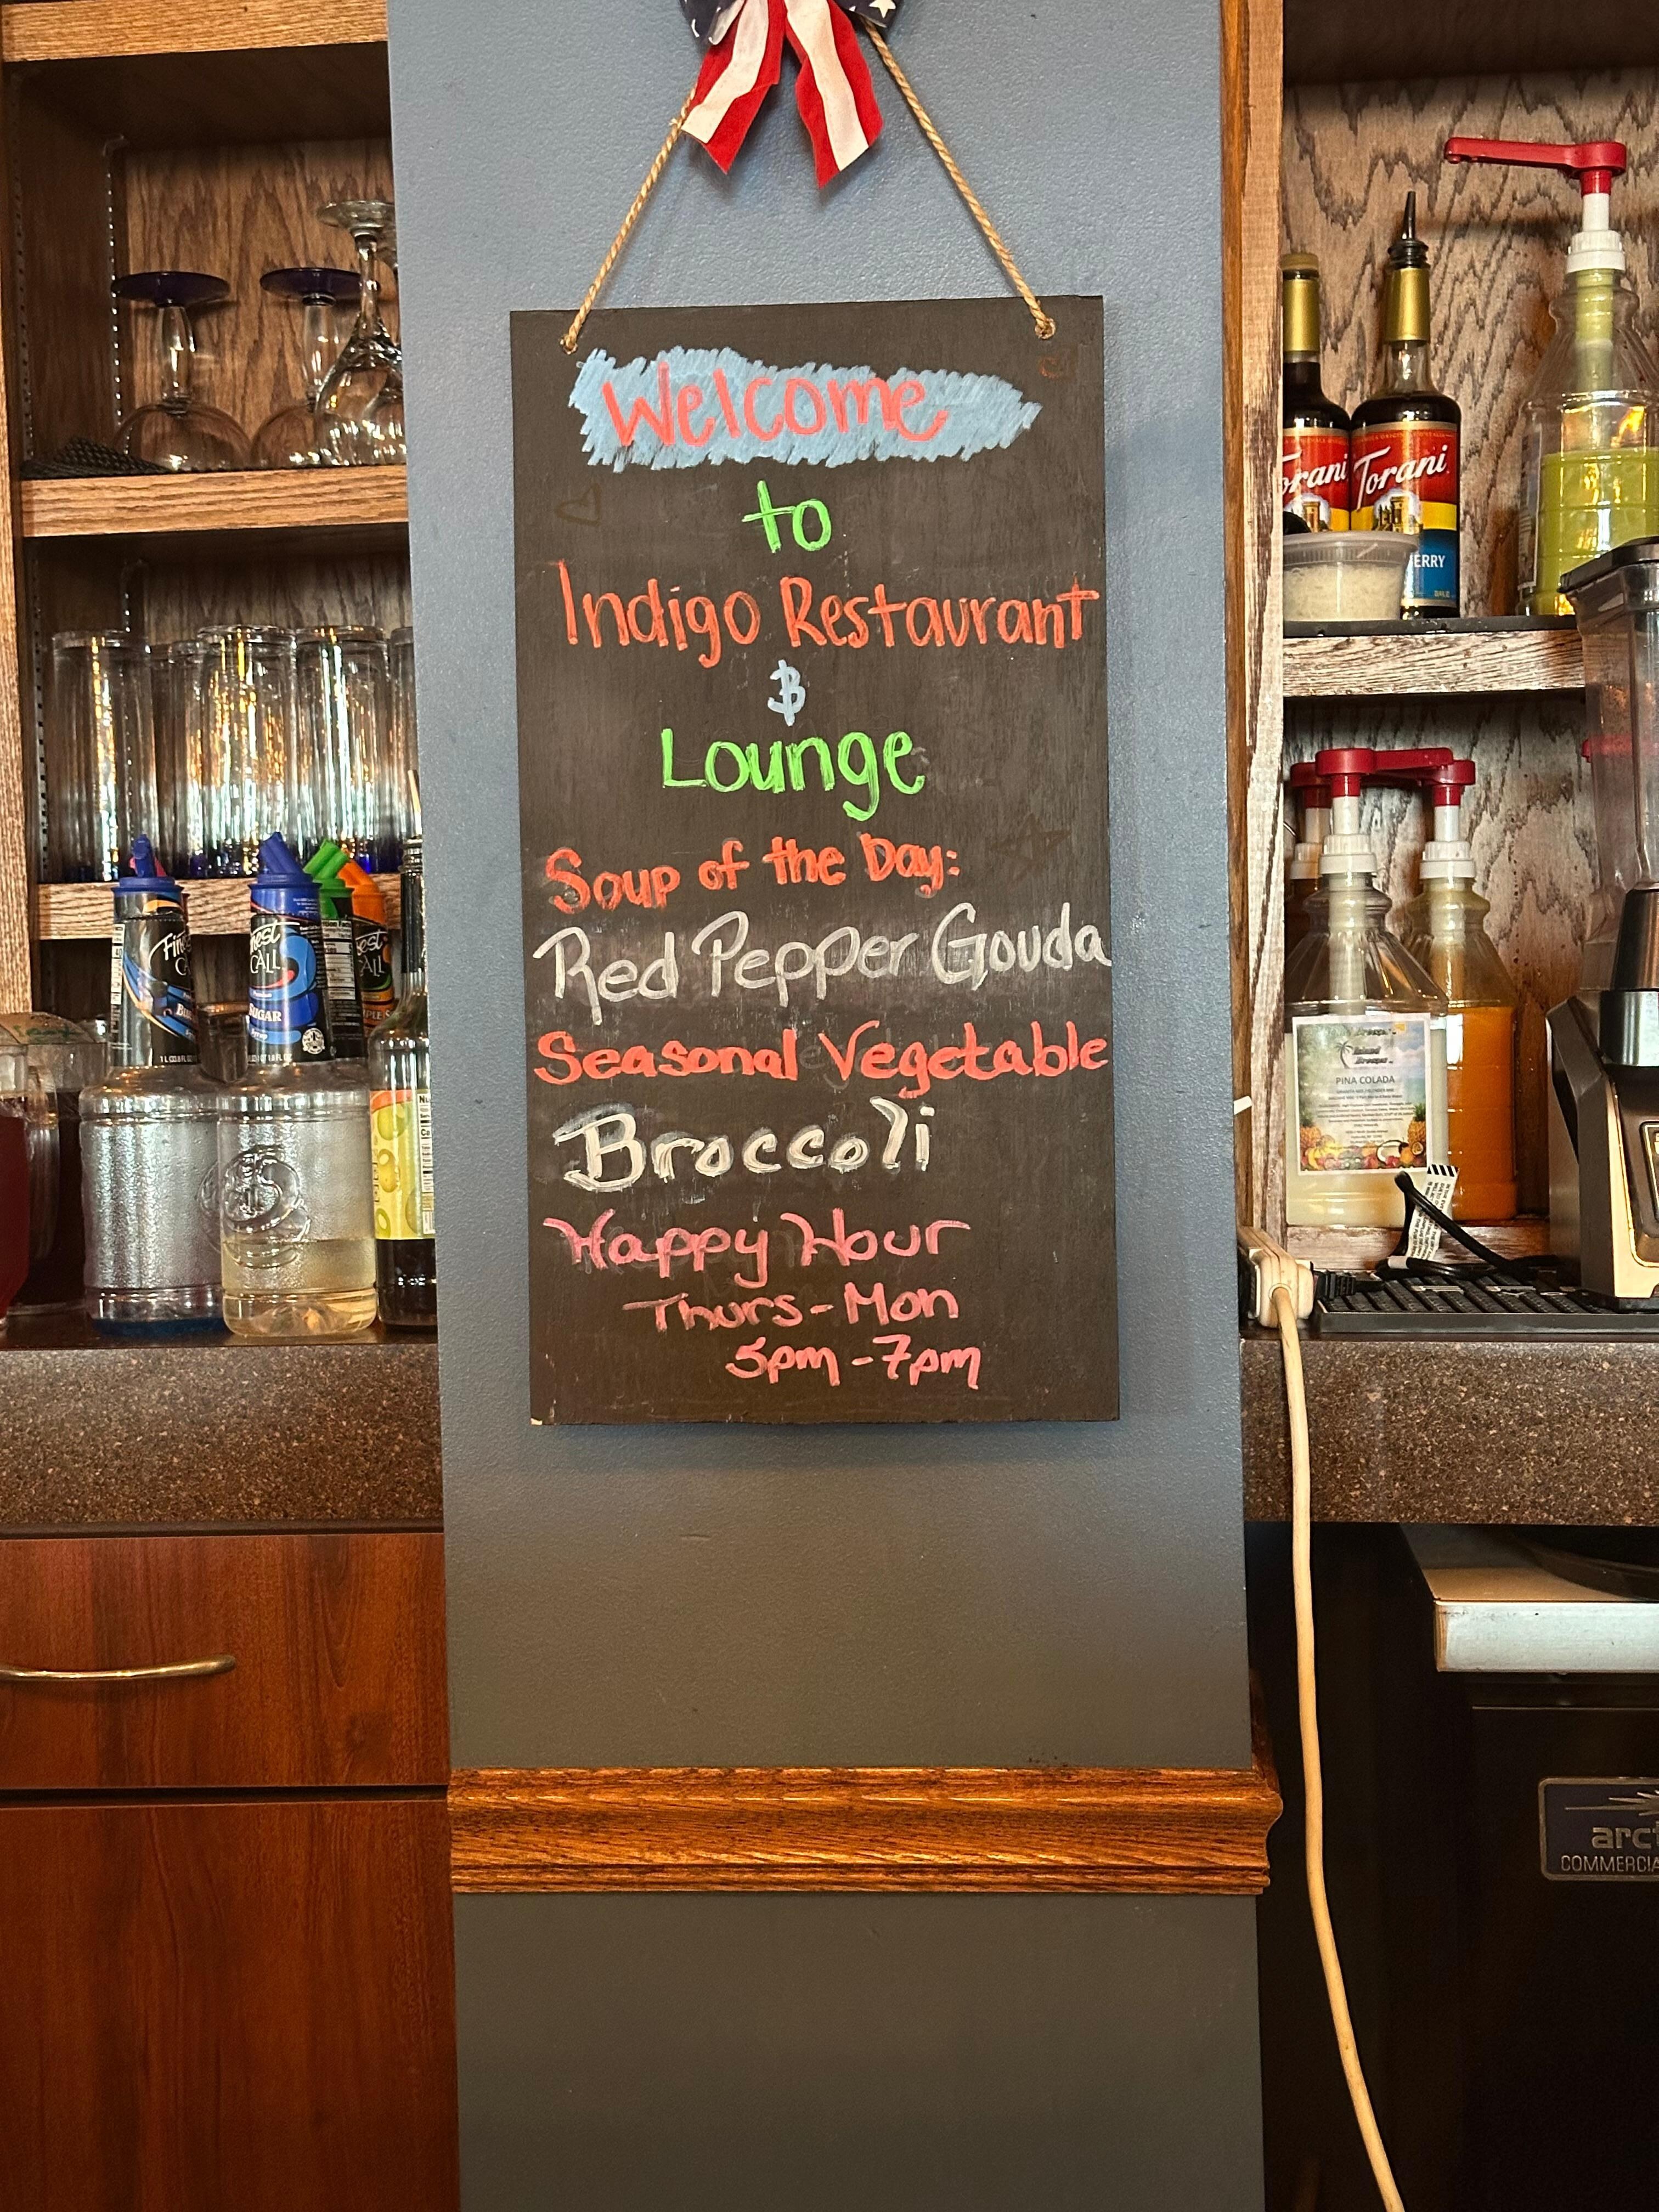 Welcome
to
Indigo Restaurant
&
Lounge
Soup of the Day:
Red Pepper Gouda
Seasonal Vegetable
Broccoli
Happy Hour
Thurs-Mon
5pm-7pm
Torani
Torani
ERRY
CALL
SUGAR
PINA COLADA
COMMERCIA